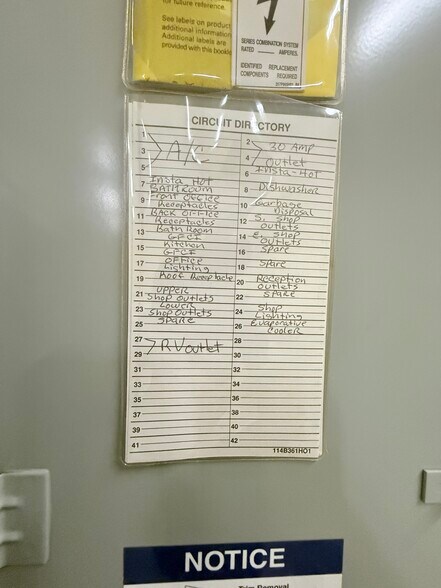 for future reference.
See labels on product
additional information
Additional labels are
provided with this bookle
SERIES COMBINATION SYSTEM
RATED ____ AMPERES.
IDENTIFIED REPLACEMENT
COMPONENTS REQUIRED
CIRCUIT DIRECTORY
1
3 > A/C
5
7 Insta Hot
BATHROOM
9 Front Office
Receptacles
11 BACK OFFICE
Receptacles
13 Bath Room
GFCI
15 Kitchen
GFCI
17 OFFICE
Lighting
19 Roof Receptacle
21 UPPER
Shop Outlets
23 Lower
Shop Outlets
25 Spare
27
29 > RV outlet
31
33
35
37
39
41
2 > 30 Amp
4 Outlet
6 Insta-Hot
8 Dishwasher
10 Garbage
Disposal
12 S. Shop
outlets
14 E. Shop
Outlets
16 Spare
18 Spare
20 Reception
outlets
22 Spare
24 Shop
Lighting
26 Evaporative
Cooler
28
30
32
34
36
38
40
42
114B361HO1
NOTICE
Trim Removal